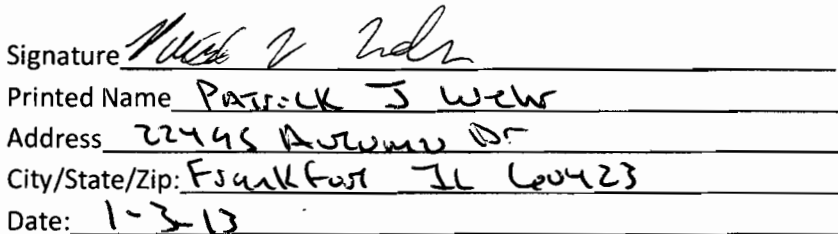 Signature
Printed Name Patrick J Wehr
Address 22445 Autumn Dr
City/State/Zip: Frankfort IL 60423
Date: 1-3-13